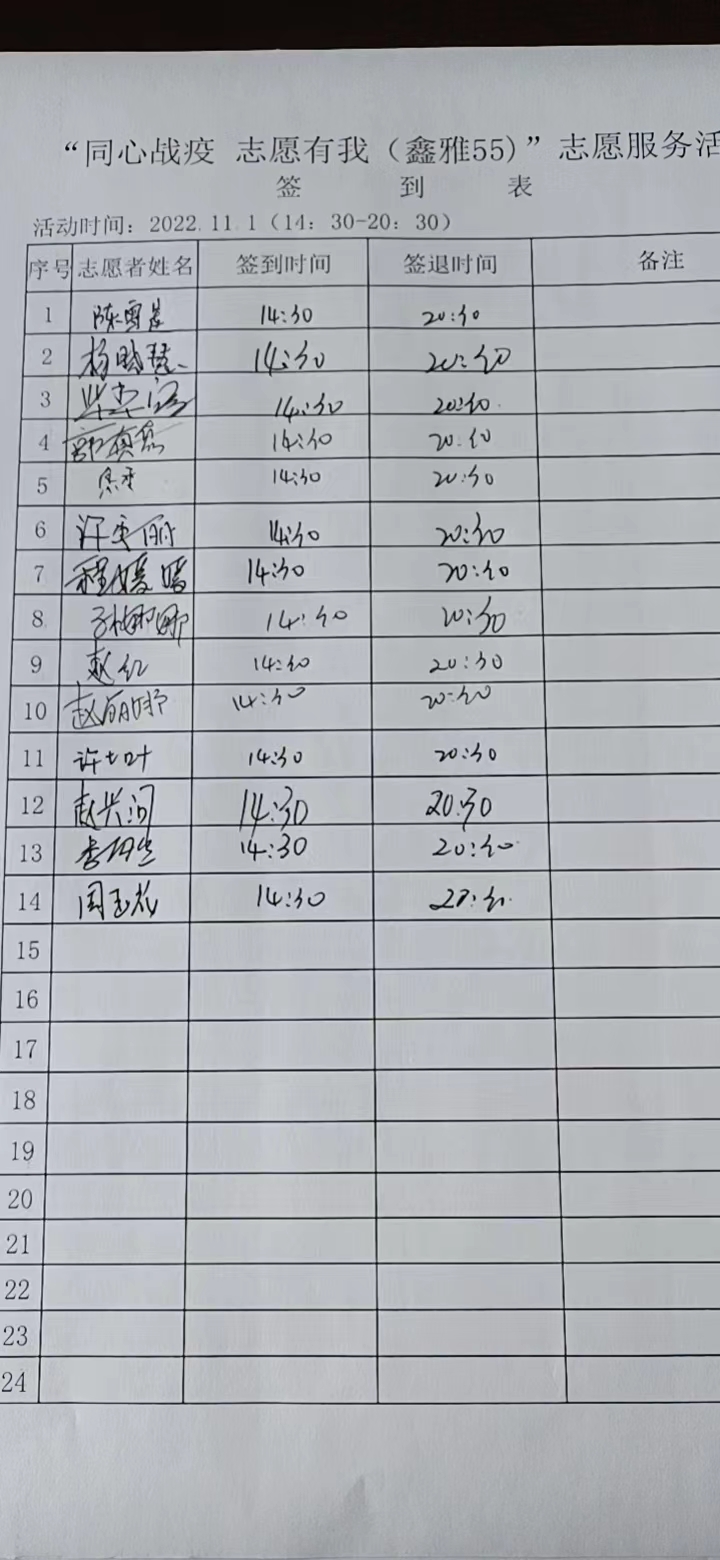 “同心战疫 志愿有我（鑫雅55）”志愿服务活
签 到 表
活动时间：2022.11.1（14：30-20：30）
序号 志愿者姓名 签到时间 签退时间 备注
1 14:30 20:30
2 14:30 20:30
3 14:30 20:30
4 14:30 20:30
5 14:30 20:30
6 14:30 20:30
7 程媛媛 14:30 20:30
8 孙娜娜 14:30 20:30
9 赵红 14:30 20:30
10 14:30 20:30
11 许七叶 14:30 20:30
12 14:30 20:30
13 14:30 20:30
14 周玉花 14:30
15
16
17
18
19
20
21
22
23
24